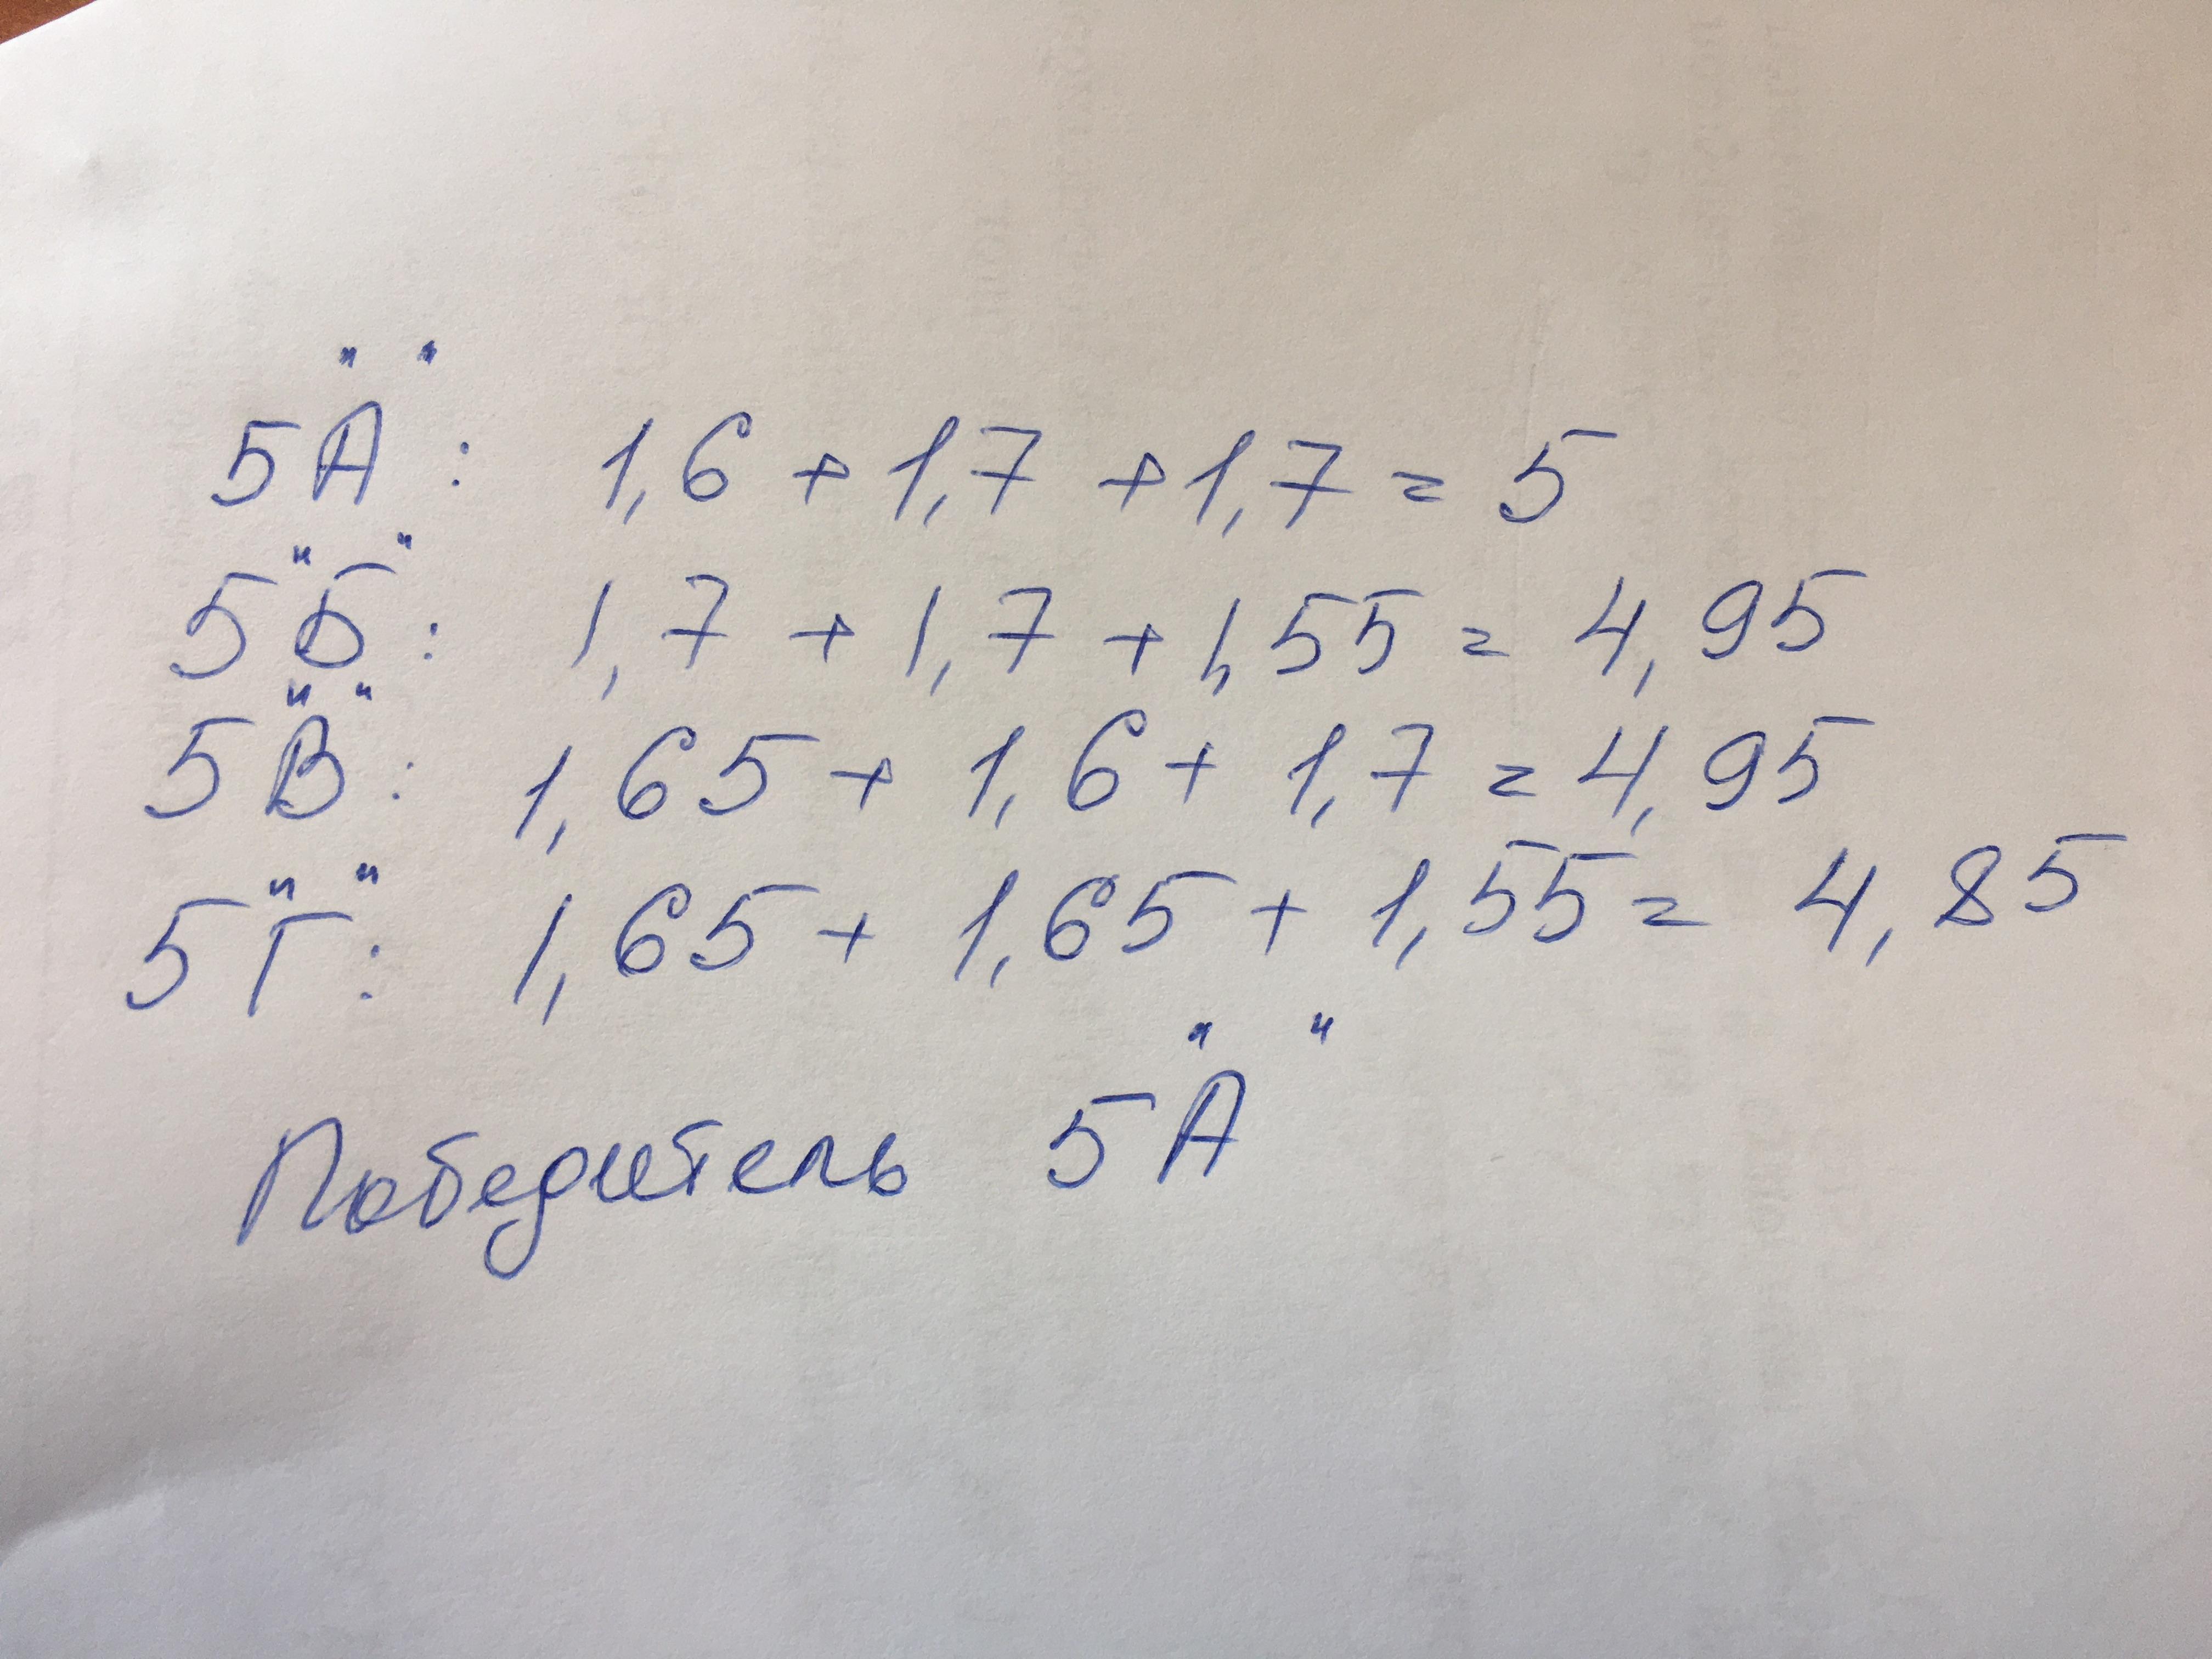 5"А": 1,6 + 1,7 + 1,7 = 5
5"Б": 1,7 + 1,7 + 1,55 = 4,95
5"В": 1,65 + 1,6 + 1,7 = 4,95
5"Г": 1,65 + 1,65 + 1,55 = 4,85
Победитель 5"А"